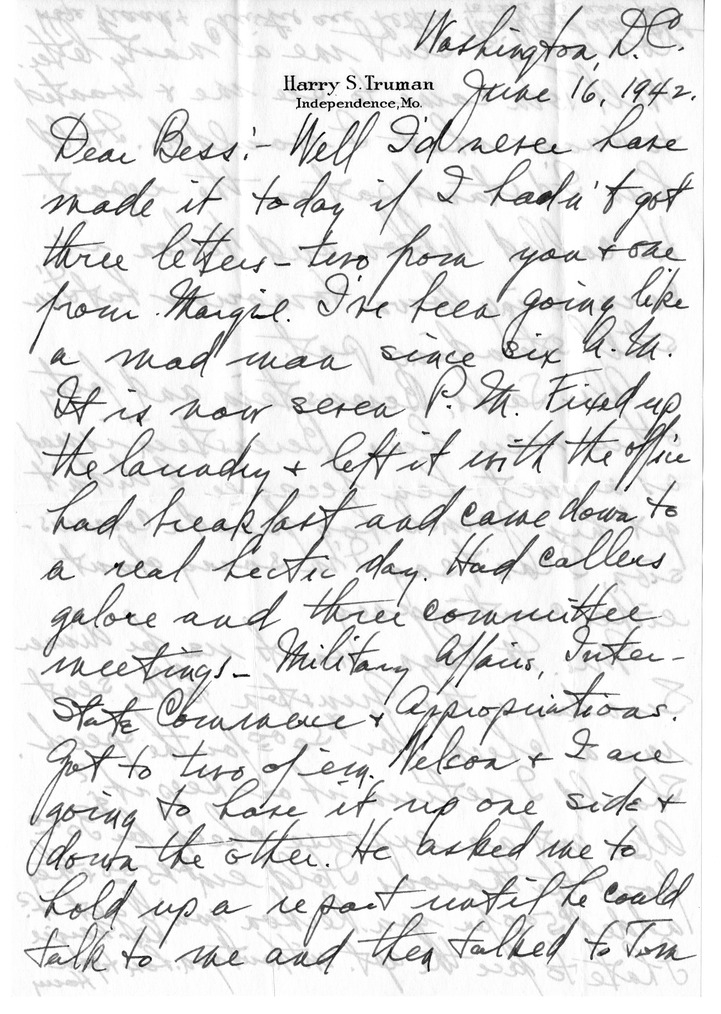 Washington, D.C.
Harry S. Truman
Independence, Mo.
June 16, 1942.
Dear Bess:- Well I'd never have
made it today if I hadn't got
three letters - two from you + one
from Margie. I've been going like
a mad man since six A.M.
It is now seven P.M. Fixed up
the laundry + left it with the office
had breakfast and came down to
a real hectic day. Had callers
galore and three committee
meetings - Military Affairs, Inter-
State Commerce + Appropriations.
Got to two of em. Nelson + I are
going to have it up one side +
down the other. He asked me to
hold up a report until he could
talk to me and then talked to Tom